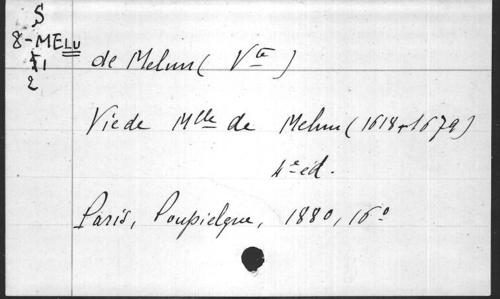 S
8-MELU
1
2
de Melun ( Vte )
Vie de Mlle de Melun (1618+1679)
4e éd.
Paris, Poupielgue, 1880, 16º